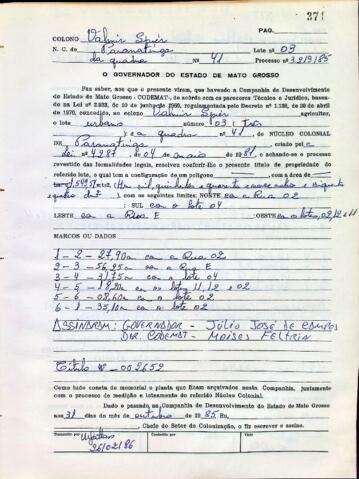 371
PAG.
COLONO Valmir Spier
N. C. de Paranatinga Lote nº 03
da quadra nº 41 Processo nº 3.219/85
O GOVERNADOR DO ESTADO DE MATO GROSSO
Faz saber, aos que o presente virem, que havendo a Companhia de Desenvolvimento
do Estado de Mato Grosso - CODEMAT-, de acôrdo com os pareceres Técnico e Jurídico, basea-
do na Lei nº 2.933, de 10 de janeiro de 1969, regulamentada pelo Decreto nº 1.138, de 20 de abril
de 1970, concessão, ao colono Valmir Spier agricultor,
o lote urbano número 03 (três
) da quadra nº 41. do NÚCLEO COLONIAL
DE Paranatinga criado pela
Lei nº 4287 de 04 de maio de 1981, e achando-se o processo
revestido das formalidades legais, resolve conferir-lhe o presente título de propriedade do
referido lote, o qual tem a configuração de um polígono com a área de
1.549,51 mts2, (Um mil, quinhentos e quarenta e nove metros e cinquenta
com os seguintes limites: NORTE com a Rua 02
: SUL com o lote 04
LESTE com a Rua E : OESTE com o lotes, 02, 12 e 11
MARCOS OU DADOS
1 - 2 - 27,90m com a Rua 02
2 - 3 - 56,25m com a Rua E
3 - 4 - 31,75m com o lote 04
4 - 5 - 18,20m com os lotes 11, 12 e 02
5 - 6 - 08,60m com o lote 02
6 - 1 - 35,10m com o lote 02
ASSINARAM: GOVERNADOR - JÚLIO JOSÉ DE CAMPOS
DIR. CODEMAT - MOISES FELTRIN
Título nº - 002652
Como tudo consta do memorial e planta que ficam arquivados nesta Companhia, juntamente
com o processo de medição e loteamento do referido Núcleo Colonial.
Dado e passado na Companhia de Desenvolvimento do Estado de Mato Grosso
aos 31 dias do mês de outubro de 1985 Eu,
Chefe do Setor de Colonização, o fiz escrever e assino.
Transcrito por
Conferido
Visto
26/02/86